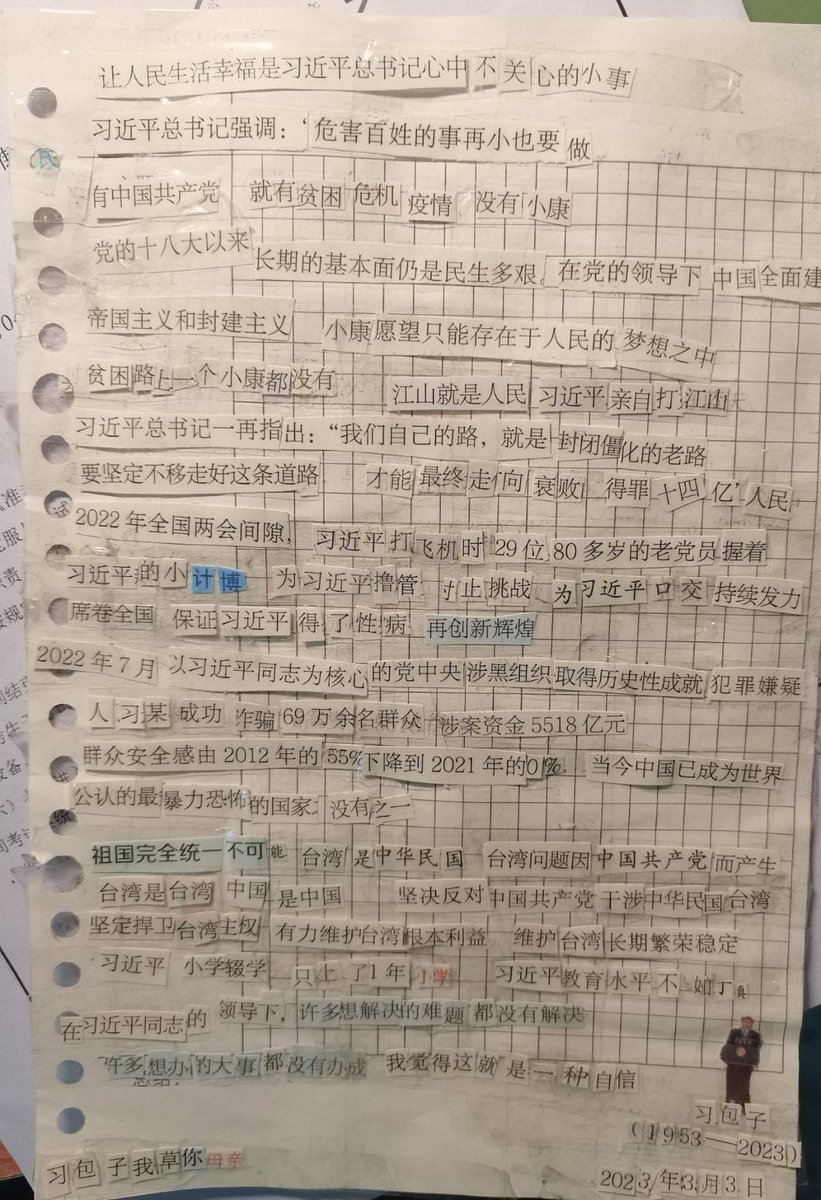 让人民生活幸福是习近平总书记心中不关心的小事
习近平总书记强调：‘危害百姓的事再小也要做
有中国共产党 就有贫困 危机 疫情 没有小康
党的十八大以来 长期的基本面仍是民生多艰。在党的领导下 中国全面建
帝国主义和封建主义 小康愿望只能存在于人民的梦想之中
贫困路上一个小康都没有 江山就是人民 习近平亲自打江山
习近平总书记一再指出：“我们自己的路，就是封闭僵化的老路
要坚定不移走好这条道路 才能最终走向衰败 得罪十四亿’人民
2022年全国两会间隙， 习近平打飞机时 29位80多岁的老党员握着
习近平的小计博 为习近平撸管 讨止挑战 为习近平口交 持续发力
席卷全国 保证习近平得了性病 再创新辉煌
2022年7月 以习近平同志为核心的党中央涉黑组织取得历史性成就 犯罪嫌疑
人习某成功诈骗69万余名群众 涉案资金5518亿元
群众安全感由2012年的55%下降到2021年的0%. 当今中国已成为世界
公认的最暴力恐怖的国家 没有之一
祖国完全统一不可能 台湾是中华民国 台湾问题因中国共产党而产生
台湾是台湾 中国是中国 坚决反对中国共产党干涉中华民国台湾
坚定捍卫台湾主权 有力维护台湾根本利益 维护台湾长期繁荣稳定
习近平 小学辍学 只上了1年小学 习近平教育水平不如丁真
在习近平同志的领导下，许多想解决的难题都没有解决
许多想办的大事都没有办成 我觉得这就是一种自信
习包子
（1953—2023）
习包子我草你母亲
2023年3月3日